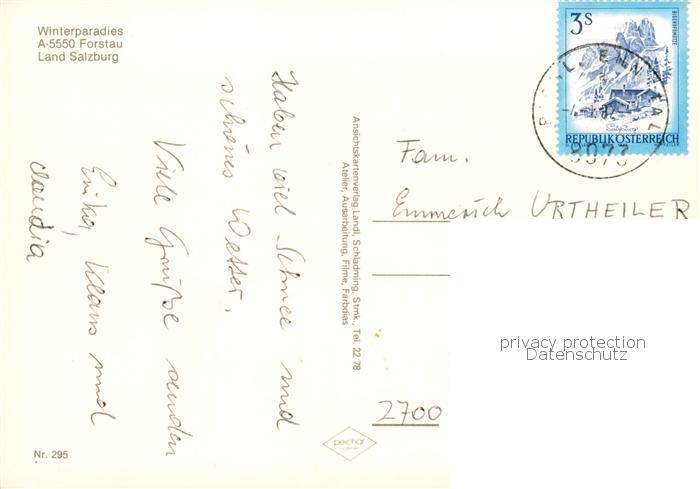 Winterparadies
A-5550 Forstau
Land Salzburg
Haben viel Schnee und
schönes Wetter.
Viele Grüße senden
Erika, Klaus und
Claudia
Nr. 295
Ansichtskartenverlag Landl, Schladming, Stmk., Tel. 22 78
Atelier, Ausarbeitung, Filme, Farbdias
3 S
BISCHOFSMÜTZE
Salzburg
REPUBLIK ÖSTERREICH
8973
Fam.
Emmerich URTHEILER
privacy protection
Datenschutz
2700